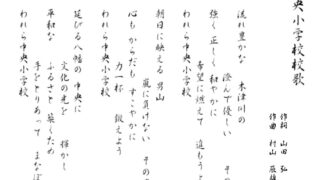 央小学校校歌
作詞 山田 弘
作曲 村山 辰雄
流れ豊かな 木津川の
澄んで優しい その
強く 正しく 和やかに
希望に燃えて 進もうと
われら中央小学校
朝日に映える 男山
嵐に負けない その
心もからだも すこやかに
力一杯 鍛えよう
われら中央小学校
延びる八幡の 中央に
文化の光を 輝かし
平和な ふるさと 築くため
手をとりあって まなぼ
われら中央小学校